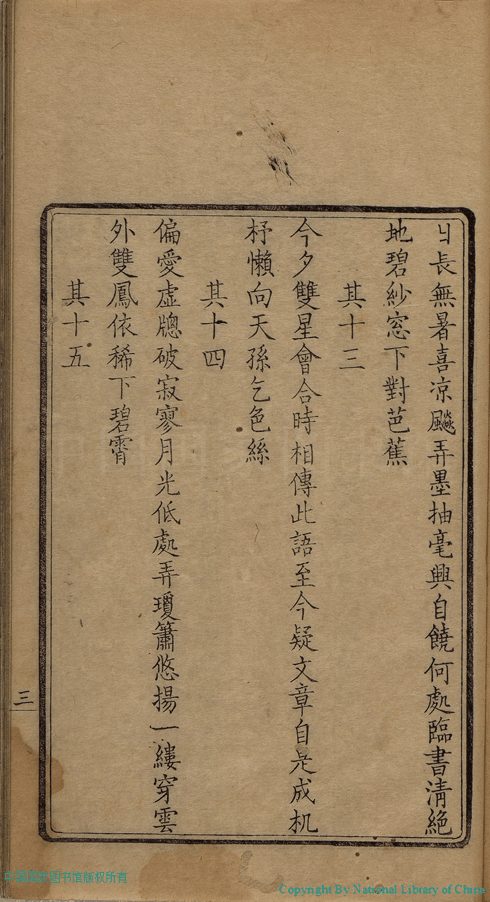 日長無暑喜凉飈弄墨抽毫興自饒何處臨書淸絶
地碧紗窓下對芭蕉
其十三
今夕雙星會合時相傳此語至今疑文章自是成机
杼懶向天孫乞色絲
其十四
偏愛虛牕破寂寥月光低處弄瓊簫悠揚一縷穿雲
外雙鳳依稀下碧霄
其十五
三
中国国家图书馆版权所有
Copyright By National Library of China